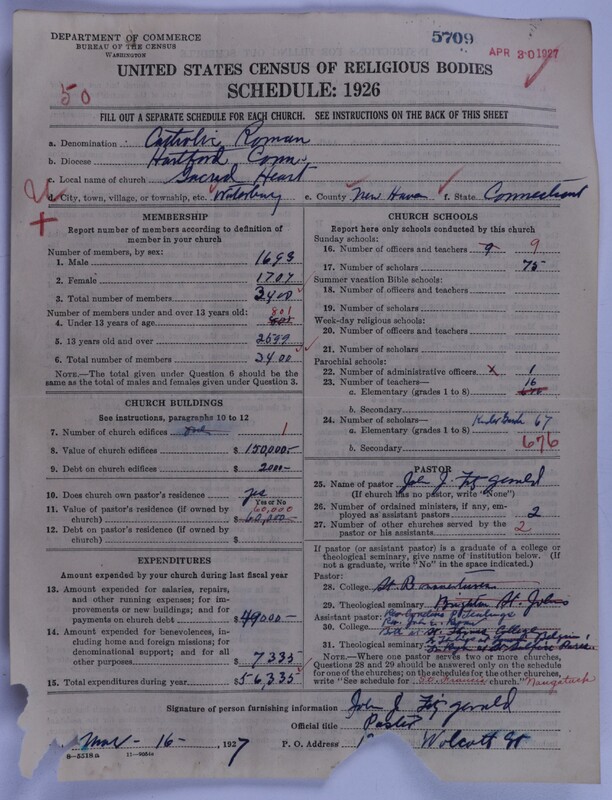 DEPARTMENT OF COMMERCE
BUREAU OF THE CENSUS
WASHINGTON
5709
APR 20 1927
UNITED STATES CENSUS OF RELIGIOUS BODIES
SCHEDULE: 1926
50
FILL OUT A SEPARATE SCHEDULE FOR EACH CHURCH. SEE INSTRUCTIONS ON THE BACK OF THIS SHEET
a. Denomination Catholic Roman
b. Diocese Hartford Conn.
c. Local name of church Sacred Heart
d. City, town, village, or township, etc. Waterbury e. County New Haven f. State Connecticut
MEMBERSHIP
Report number of members according to definition of
member in your church
Number of members, by sex:
1. Male 1693
2. Female 1707
3. Total number of members 3400
Number of members under and over 13 years old: 801
4. Under 13 years of age
5. 13 years old and over 2599
6. Total number of members 3400
NOTE.—The total given under Question 6 should be
same as the total of males and females given under Question 3.
CHURCH BUILDINGS
See instructions, paragraphs 10 to 12
7. Number of church edifices one 1
8. Value of church edifices $ 150,000.-
9. Debt on church edifices $ 2000.-
10. Does church own pastor's residence yes
Yes or No
11. Value of pastor's residence (if owned by
church) 60,000 $ 60,000.-
12. Debt on pastor's residence (if owned by
church) $
EXPENDITURES
Amount expended by your church during last fiscal year
13. Amount expended for salaries, repairs,
and other running expenses; for im-
provements or new buildings; and for
payments on church debt $ 49000.-
14. Amount expended for benevolences, in-
cluding home and foreign missions; for
denominational support; and for all
other purposes $ 7335
15. Total expenditures during year $ 56,335
CHURCH SCHOOLS
Report here only schools conducted by this church
Sunday schools:
16. Number of officers and teachers 9 9
17. Number of scholars 75
Summer vacation Bible schools:
18. Number of officers and teachers
19. Number of scholars
Week-day religious schools:
20. Number of officers and teachers
21. Number of scholars
Parochial schools:
22. Number of administrative officers x 1
23. Number of teachers— 16
a. Elementary (grades 1 to 8)
b. Secondary
24. Number of scholars— 67
a. Elementary (grades 1 to 8)
b. Secondary 676
PASTOR
25. Name of pastor John J. Fitzgerald
(If church has no pastor, write "None")
26. Number of ordained ministers, if any, em-
ployed as assistant pastors 2
27. Number of other churches served by the
pastor or his assistants 2
If pastor (or assistant pastor) is a graduate of a college or
theological seminary, give name of institution below. (If
not a graduate, write "No" in the space indicated.)
Pastor:
28. College St Bonaventures
29. Theological seminary Brighton St. Johns
Assistant pastor:
30. College
31. Theological seminary
NOTE.—Where one pastor serves two or more churches,
Questions 28 and 29 should be answered only on the schedule
for one of the churches; on the schedules for the other churches,
write "See schedule for St. Francis church." Naugatuck
Signature of person furnishing information John J Fitzgerald
Official title Pastor
Mar - 16 -, 1927 P. O. Address Wolcott St
8-5518a 11-9054a